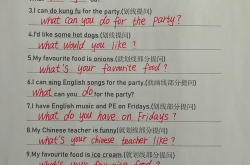 3.I can do kung fu for the party.(划线提问)
what can you do for the party ?
4.I'd like some hot dogs.(划线提问)
what would you like ?
5.My favourite food is onions.(就划线部分提问)
what's your favourite food ?
6.I can sing English songs for the party.(就划线部分提问)
what can you do for the party?
7.I have English music and PE on Fridays.(就划线部分提问)
what do you have on Fridays ?
8.My Chinese teacher is funny.(就划线部分提问)
what's your chinese teacher like ?
9.My favourite food is ice cream.(就划线部分提问)
what's your favourite food ?